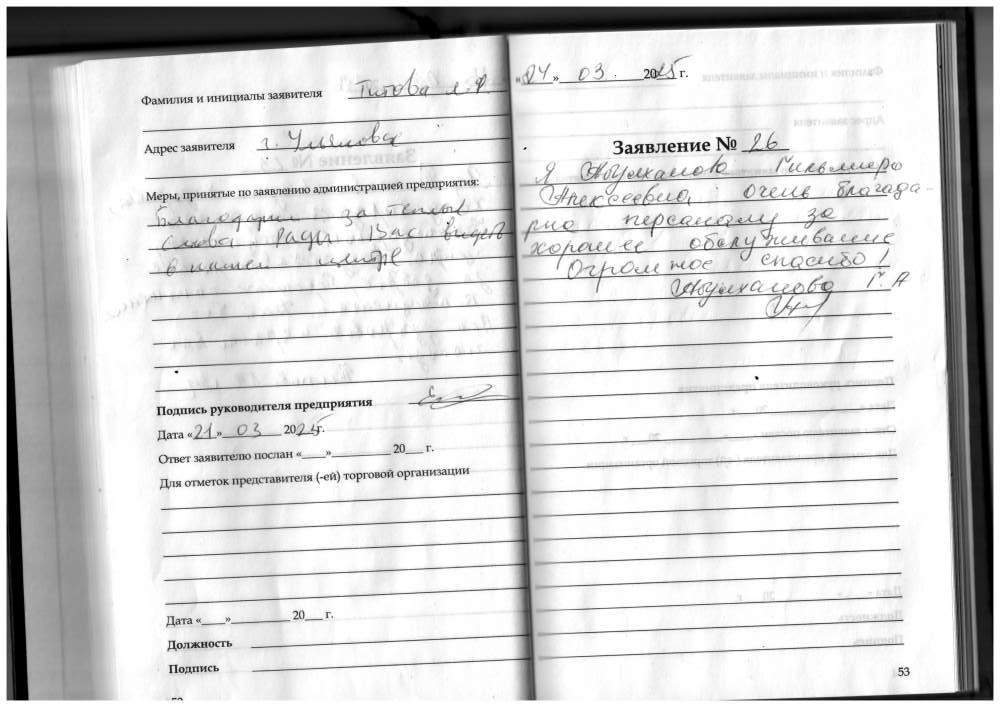 Фамилия и инициалы заявителя Титова Л.Ф.
Адрес заявителя г. Ульяновск
Меры, принятые по заявлению администрацией предприятия:
Благодарим за теплые
слова. Рады Вас видеть
в нашем центре
Подпись руководителя предприятия
Дата «21» 03 2025г.
Ответ заявителю послан «___»__________ 20___ г.
Для отметок представителя (-ей) торговой организации
Дата «____»__________ 20___ г.
Должность
Подпись
«24» 03 2025 г.
Заявление № 26
Я
Алексеевна, очень благада-
рна персоналу за
хорошее обслуживание
Огромное спасибо!
Г.А
53